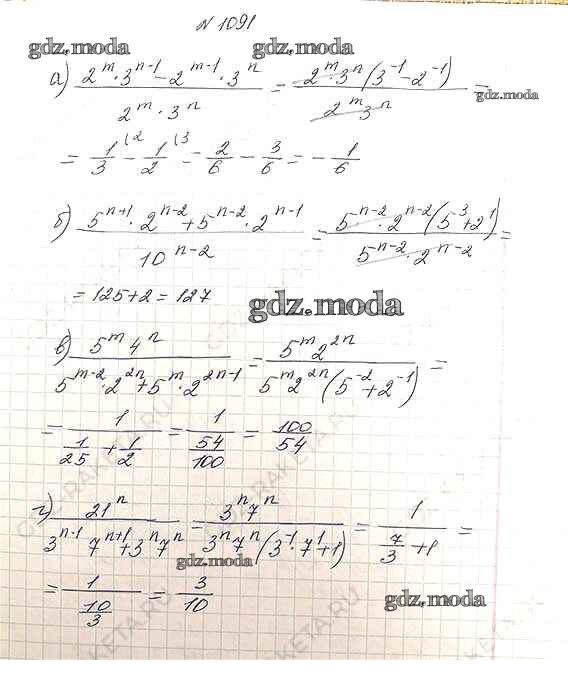 № 1091
gdz.moda gdz.moda
а) (2^m · 3^(n-1) - 2^(m-1) · 3^n) / (2^m · 3^n) = (2^m · 3^n (3^(-1) - 2^(-1))) / (2^m 3^n) =
gdz.moda
= 1/3 (2 - 1/2 (3 = 2/6 - 3/6 = - 1/6
б) (5^(n+1) · 2^(n-2) + 5^(n-2) · 2^(n-1)) / 10^(n-2) = (5^(n-2) · 2^(n-2) (5^3 + 2^1)) / (5^(n-2) · 2^(n-2)) =
= 125 + 2 = 127
gdz.moda
в) (5^m 4^n) / (5^(m-2) · 2^(2n) + 5^m · 2^(2n-1)) = (5^m 2^(2n)) / (5^m 2^(2n) (5^(-2) + 2^(-1))) =
= 1 / (1/25 + 1/2) = 1 / (54/100) = 100/54
г) 21^n / (3^(n-1) 7^(n+1) + 3^n 7^n) = (3^n 7^n) / (3^n 7^n (3^(-1) · 7^1 + 1)) = 1 / (7/3 + 1) =
gdz.moda
= 1 / (10/3) = 3/10
gdz.moda
GDZ-RAKETA.RU